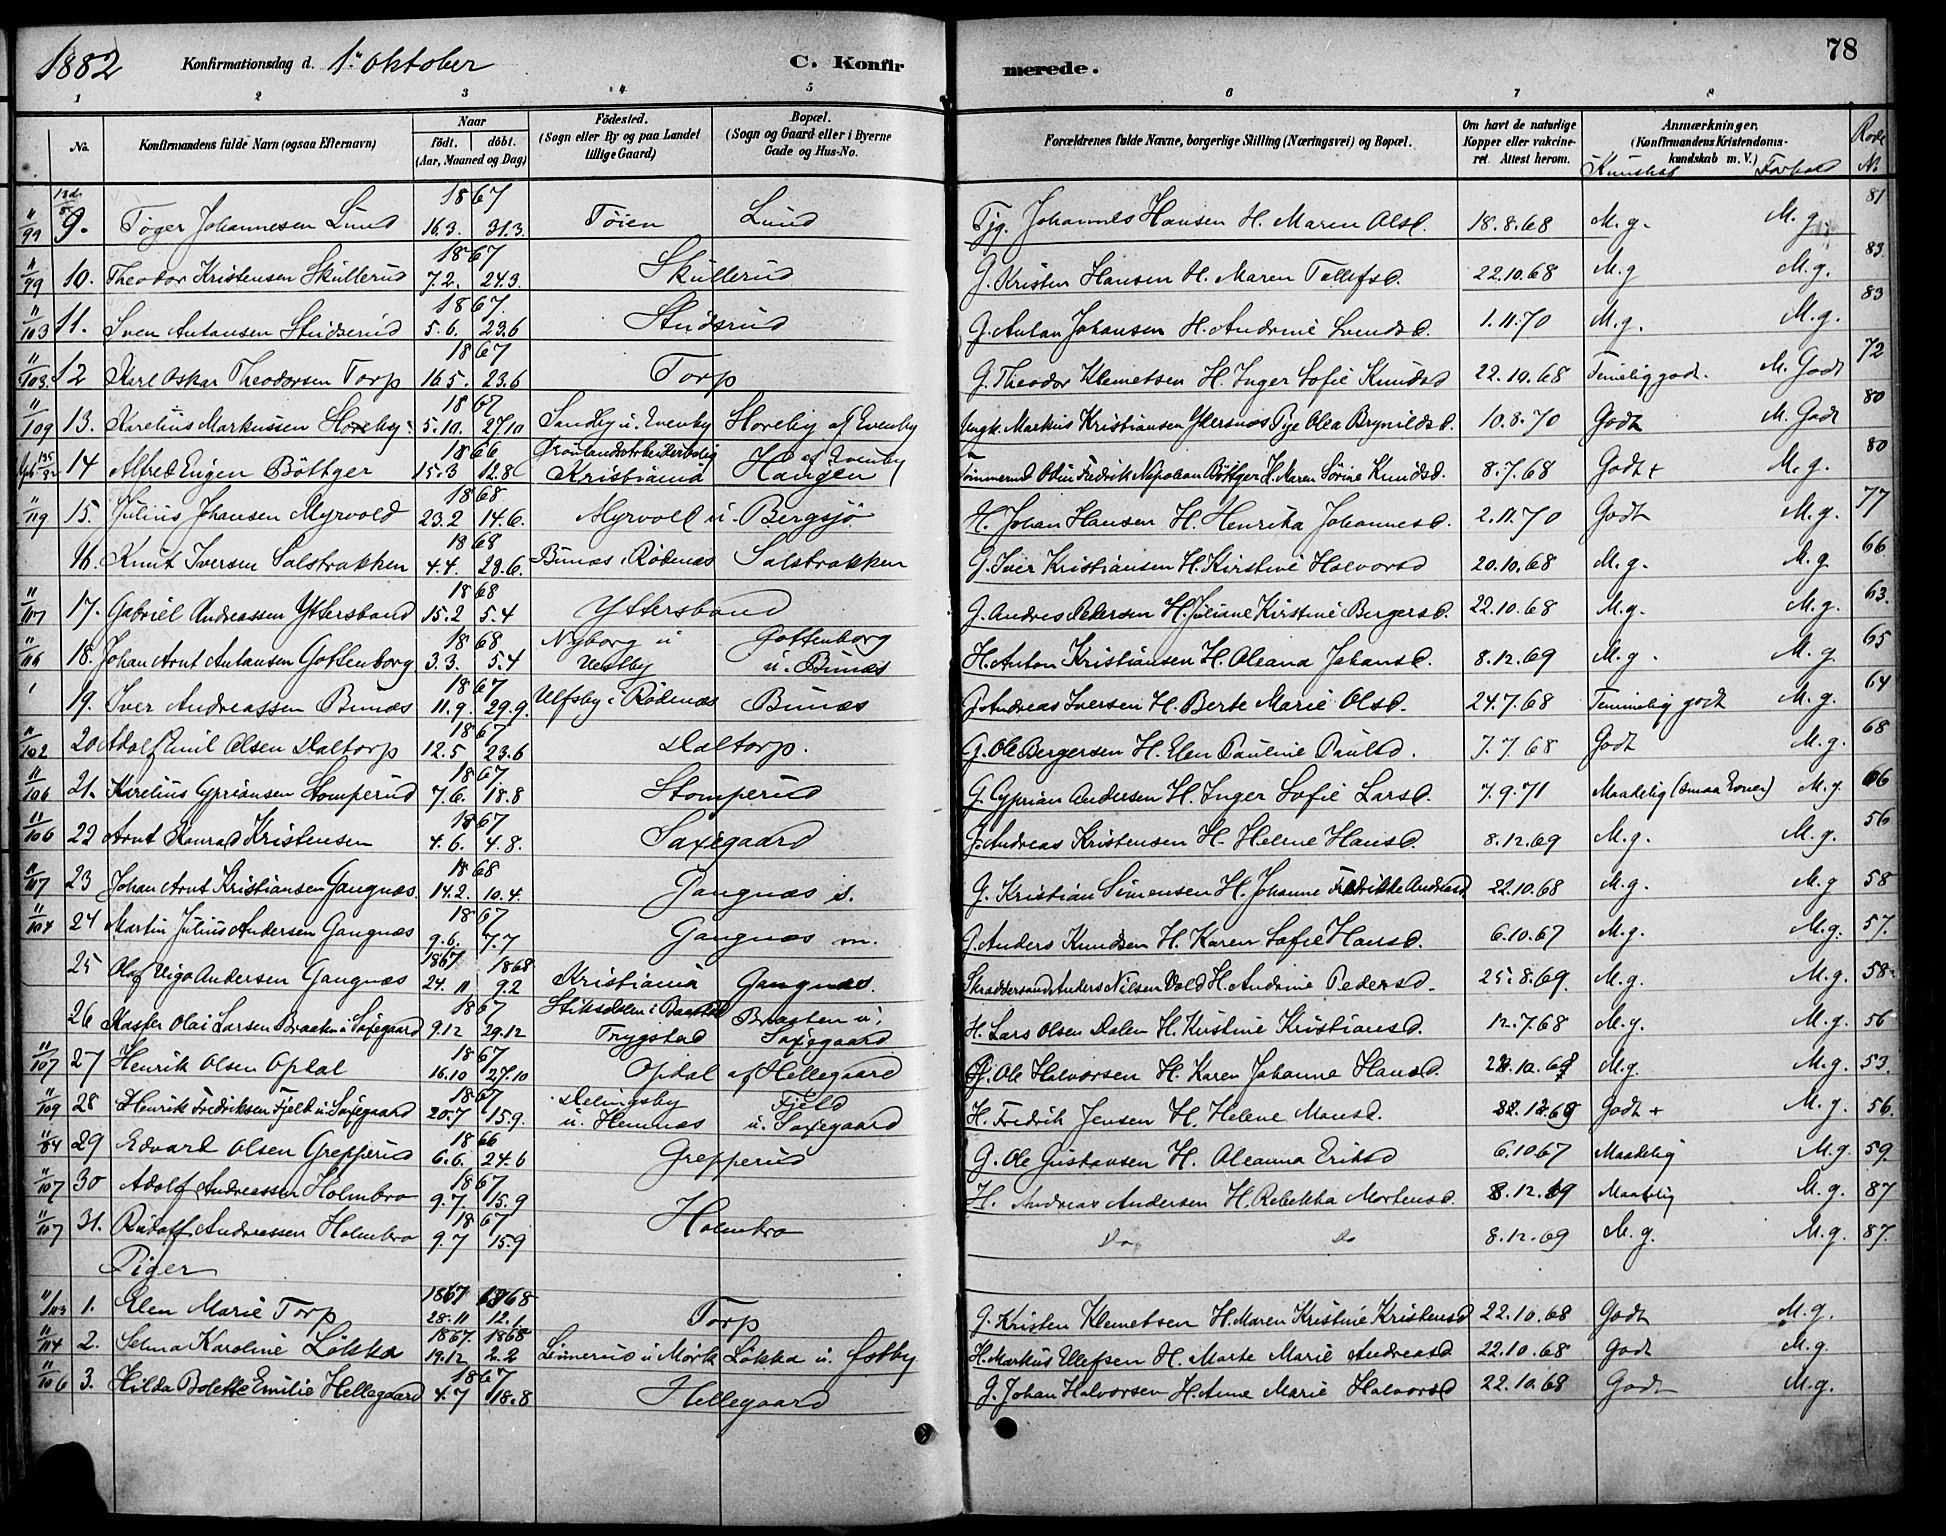 1882 Konfirmationsdag d. 1. Oktober C. Konfirmerede. 78
1 2 3 4 5 6 7 8
No. Konfirmandens fulde Navn (ogsaa Efternavn) Naar født, døbt. (Aar, Maaned og Dag) Fødested. (Sogn eller By og paa Landet tillige Gaard) Bopæl. (Sogn og Gaard eller i Byerne Gade og Hus-No. Forældrenes fulde Navne, borgerlige Stilling (Næringsvei) og Bopæl. Om havt de naturlige Kopper eller vakcineret. Attest herom. Anmærkninger. (Konfirmandens Kristendomskundskab m. V.) Kunskab Forhold Rode N.
11/99 9. Töger Johannesen Lund 1867 16.3. 31.3. Töien Lund Tjg. Johannes Hansen H. Maren Olsd. 18.8.68 M.g. M.g 81
11/99 10. Theodor Kristensen Skullerud 1867 7.2. 24.3. Skullerud G. Kristen Hansen H. Maren Tollefsd. 22.10.68 M.g M.g. 83
11/103 11. Sven Antansen Studsrud 1867. 5.6. 23.6 Studsrud G. Antan Johansen H. Andrine Svendsd. 1.11.70 M.g. M.g. 83
11/103. 12 Karl Oskar Theodorsen Torp 1867 16.5. 23.6 Torp G. Theodor Klemetsen H. Inger Sofie Knudsd 22.10.68 Temelig godt. M. Godt 72
11/109 13. Karelius Markussen Horeby 1867 5.10. 27.10 Sandby u. Evenby Horeby af Evenby Ungk. Markus Kristiansen Ytersnæs Pige Olea Brynildsd. 10.8.70 Godt M. Godt 80
14 Alfred Eugen Böttger 1866 15.3 12.8 Grönlands Arbeiderbolig Kristiania Haugen af Evenby Tömmermd Olvin Fredrik Napolean Böttger H. Karen Sörine Knudsd. 8.7.68 Godt + M.g. 80
11/119 15. Julius Johansen Myrvold 1868 23.2 14.6. Myrvold u. Bergsjö H. Johan Hansen H. Henrika Johannesd. 2.11.70 Godt M.g. 77
16. Knut Iversen Solstrakken 1868 4.4. 28.6. Bunæs i Rödenæs Solstrakken G. Iver Kristiansen H. Kirstine Halvorsd 20.10.68 M.g. M.g. 66
11/107 17. Gabriel Andreassen Yttersband 1868 15.2 5.4 Yttersband G. Andres Pedersen H. Juliane Kirstine Bergersd. 22.10.68 M.g. M.g. 63.
11/116 18. Johan Arnt Antansen Gottenborg 1868 3.3. 5.4 Nyborg u Vestby Gottenborg u. Bunæs H. Anton Kristiansen H. Oleana Johansd. 8.12.69 M.g. M.g. 65
19. Iver Andreassen Bunæs 1867 11.9. 29.9. Ulfsby i Rödenæs Bunæs G. Andreas Iversen H. Berte Marie Olsd. 24.7.68 Temmelig godt M.g. 64
11/102 20 Adolf Emil Olsen Daltorp 1867 12.5 23.6 Daltorp. G. Ole Bergersen H. Elen Pauline Paulsd. 7.7.68 Godt M.g. 68
11/106 21. Karelius Cyprianesen Stomperud 1867. 7.6. 18.8 Stomperud G. Cyprian Andersen H. Inger Sofie Larsd. 7.9.71 Maadelig (smaa Evner) M.g. 66
11/106 22 Arnt Konrad Kristensen 1867 4.6. 4.8. Saxegaard G. Andreas Kristensen H. Helene Hansd. 8.12.69 M.g. M.g. 56
11/117 23 Johan Arnt Kristiansen Gangnæs 1868 14.2. 10.4. Gangnæs s. G. Kristian Simensen H. Johanne Fredrikke Andreasd 22.10.68 M.g. M.g 58
11/104 24 Martin Julius Andersen Gangnæs 1867 9.6. 7.7 Gangnæs m. G. Anders Knudsen H. Karen Sofie Hansd. 6.10.67 M.g. M.g. 57.
25 Olaf Vigo Andersen Gangnæs 1867 1868 24.11 9.2 Kristiania Gangnæs. Skræddersvend Anders Nilsen Vold H. Andrine Pedersd. 25.8.69. M.g. M.g. 58.
26 Kasper Olai Larsen Braaten u Saxegaard 1867 9.12 29.12 Trygstad Braaten u. Saxegaard H. Lars Olsen Dalen H. Kristine Kristiansd. 12.7.68 M.g. M.g. 56
11/107 27 Henrik Olsen Opdal 1867 16.10 27.10 Opdal af Hellegaard G. Ole Halvorsen H. Karen Johanne Hansd. 22.10.68 M.g. M.g. 53.
11/109 28 Henrik Fredriksen Fjeld u. Saxegaard 1867 20.7 15.9. Delingsby u. Hemnæs Fjeld u. Saxegaard H. Fredrik Jensen H. Helene Mansd. 22.12.69 Godt + M.g. 56.
11/84 29 Edvard Olsen Grepperud 1866 6.6. 24.6 Grepperud G. Ole Gustavsen H. Oleanna Eriksd 6.10.67 Maadelig M.g. 59.
11/107 30 Adolf Andreassen Holmbro 1867 9.7. 15.9 H. Andreas Andersen H. Rebekka Mortensd. 8.12.69 Maadelig M.g. 87
11/107 31. Rudolf Andreassen Holmbro 1867 9.7 15.9 Holmbro Do Do 8.12.69 M.g. M.g. 87.
Piger
11/113 1. Elen Marie Torp 1867 1868 28.11 12.1. Torp G. Kristen Klemetsen H. Maren Kristine Kristensd 22.10.68 Godt M.g.
11/114 2. Selma Karoline Lökka 1867. 1868 19.12 2.2 Linnerud u Mörk Lökka u. Østby H. Markus Ellefsen H. Marte Marie Andreasd 22.10.68 Godt M.g
11/106 3. Hilda Bolette Emilie Hellegaard 1867 4.7 18.8 Hellegaard G. Johan Halvorsen H. Anne Marie Halvorsd 22.10.68 Godt M.g.